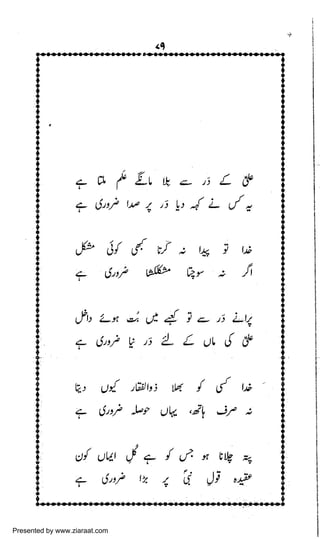 ۷۹
علیؑ کے در سے بلا مانگے علم ملتا ہے
یہ کس نے کہہ دیا در پر صدا ضروری ہے
خدا تو پیدا نہ کرتا کبھی کوئی مشکل
اگر نہ سوچتا مشکلکشا ضروری ہے
پرانے در سے تو کعبے میں بت ہوئے داخل
علیؑ کی ماں کے لئے در نیا ضروری ہے
خدا کسی کو بھلا ذوالفقار کیوں دیتا
نہ صرف ہاتھ، یہاں حوصلہ ضروری ہے
پتہ چلانا ہو جس کو ہے کل ایماں کون
عقیدہ قول نبیؐ پر بڑا ضروری ہے
Presented by www.ziaraat.com